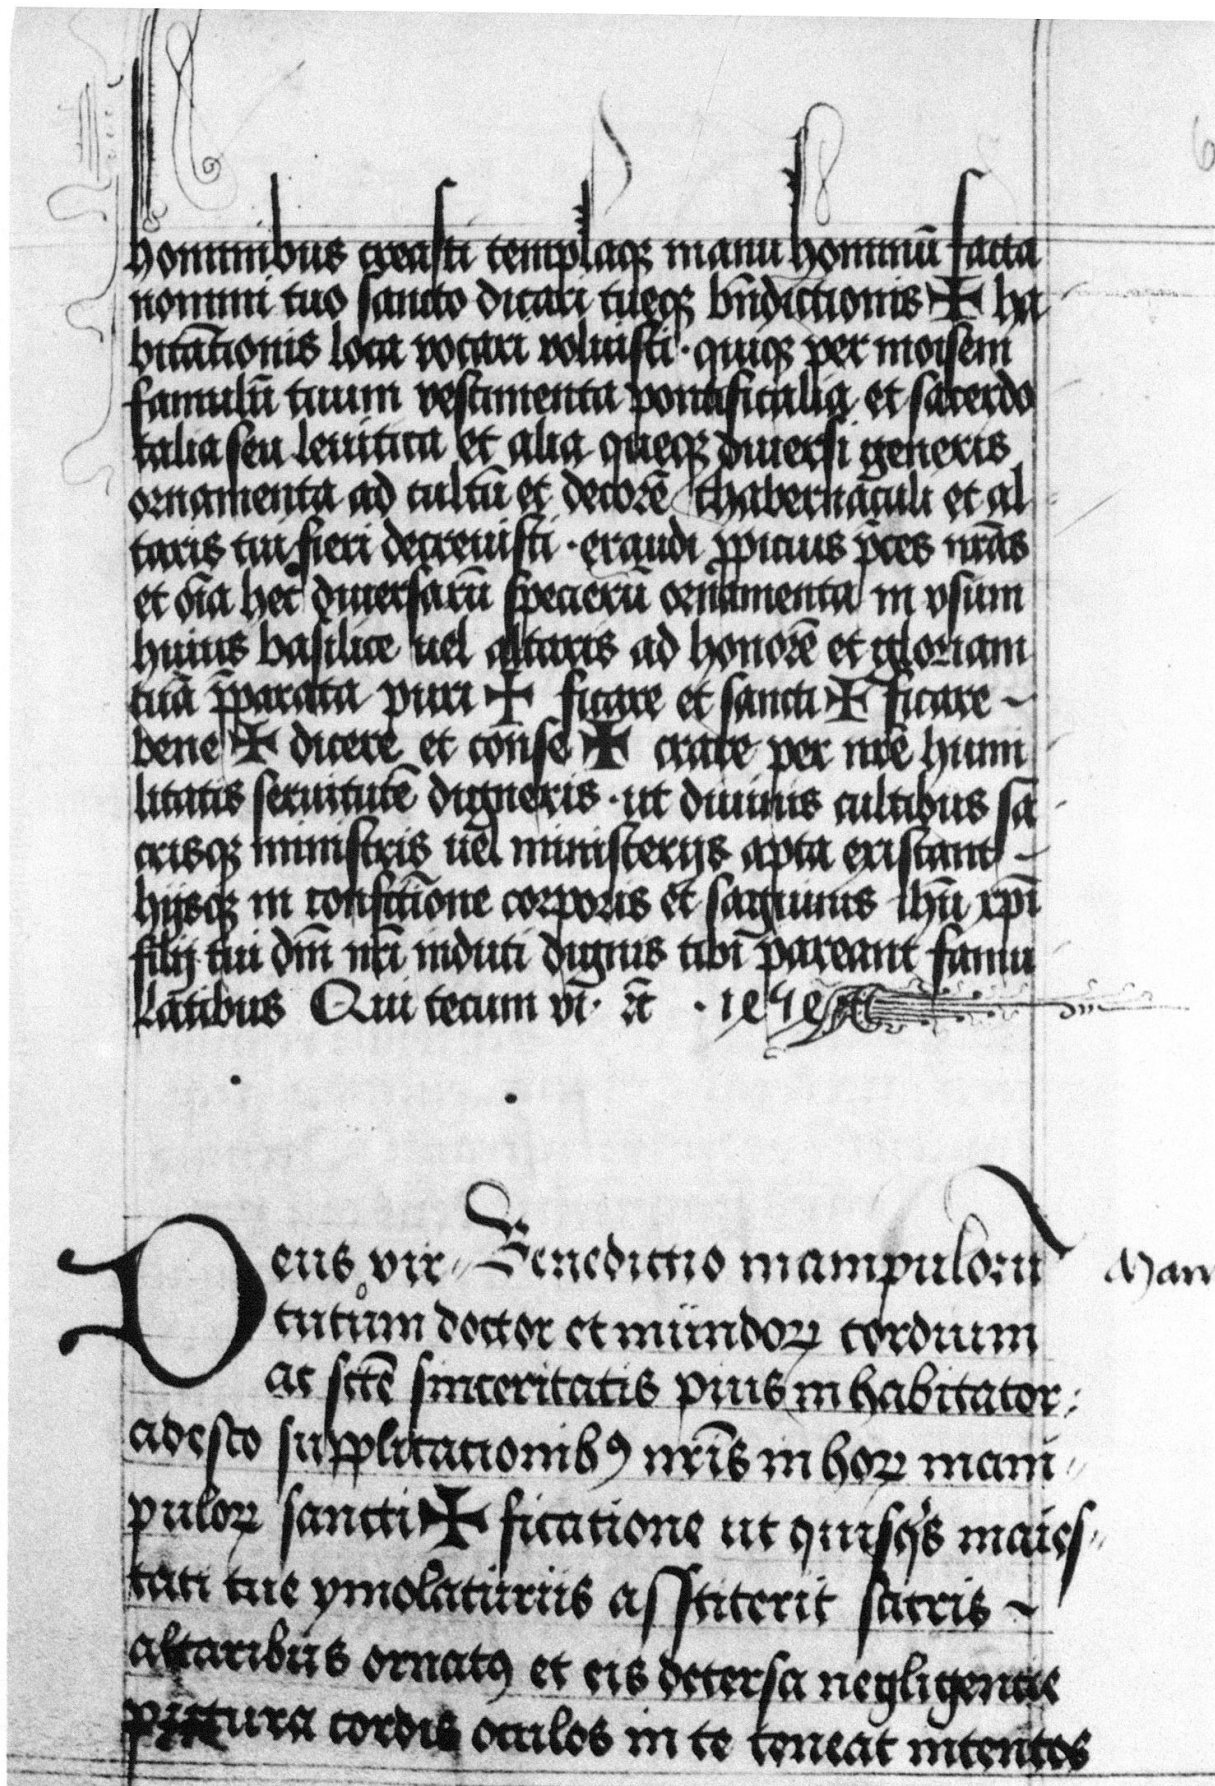 hominibus creasti templaqꝫ manu hominū facta
nomini tuo sancto dicari tueqꝫ bn̄dictionis ✠ ha
bitac̄ionis loca vocari voluisti · quiqꝫ per moisem
famulū tuum vestimenta pontificalia et sacerdo
talia seu leuitica et alia queqꝫ diuersi generis
ornamenta ad cultū et decorē thabernac̄uli et al
taris tui fieri decreuisti · exaudi ꝓpicius p̄ces nr̄as
et oīa hec diuersarū specierū ornamenta in vsum
huius basilice uel altaris ad honorē et gloriam
tuā p̄parata puri ✠ ficare et sancti ✠ ficare ~
bene ✠ dicere et con̄se ✠ crare per nr̄e humi
litatis seruitutē digneris · ut diuinis cultibus sa
crisqꝫ ministris uel ministerijs apta existant ~
hijsqꝫ in confectīone corporis et sāguinis ihū xp̄i
filij tui dn̄i nr̄i induti dignis tibi pareant famu
lātibus Qui tecum vi · ⁊c̄ ·
eus vir〃 Benedictio manipulorū
Man
D tutum doctor et mundoꝝ cordium
ac sctē sinceritatis pius inhabitator :
adesto supplicacionibꝰ nr̄is in hoꝝ mani〃
puloꝝ sancti ✠ ficatione ut quisqͥs maies〃
tati tue ymolaturus asstiterit sacris ~
altaribus ornatꝰ et eis detersa negligentie
cordis oculos in te teneat intentos